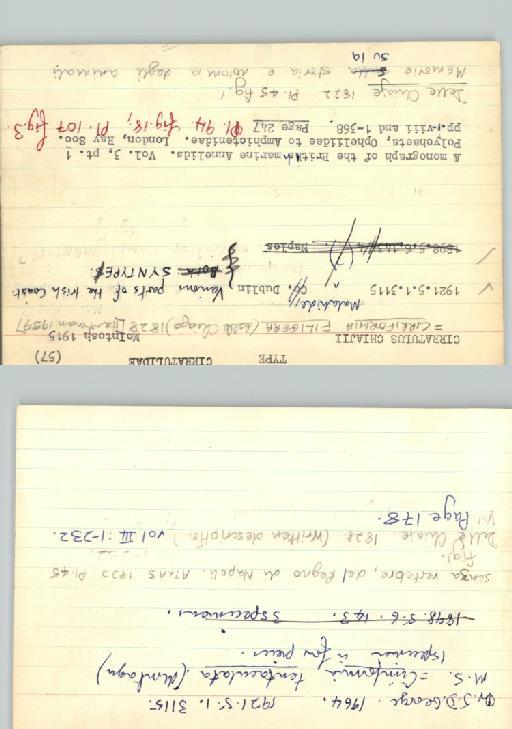 (57)
TYPE CIRRATULIDAE
CIRRATULUS CHIAJII McIntosh 1915
= CIRRIFORMIA FILIGERA (Delle Chiaje) 1828 [Hartman 1959]
Malahide,
1921.5.1.3115 Co. Dublin Various parts of the Irish Coast
(?) Both SYNTYPES
1898.5.6.143/4 Naples
A monograph of the British marine Annelids. Vol. 3, pt. 1
Polychaeta, Opheliidae to Ampharetidae. London, Ray Soc.
pp.i-viii and 1-368. Page 247 Pl. 94 fig. 18; Pl. 107 fig. 3.
Delle Chiaje 1822 Pl. 45 fig. 1
Memorie sulla storia e notomia degli animali
su la
Dr. J.D. George. 1964. 1921.5.1.3115.
M.S. = Cirriformia tentaculata (Montagu)
1 specimen in few pieces.
1898.5.6.143. 3 specimens.
senza vertebre, del Regno di Napoli. Atlas 1822 Pl. 45
fig.
Delle Chiaje. 1828 (Written description) vol III: 1-232.
Page 178.